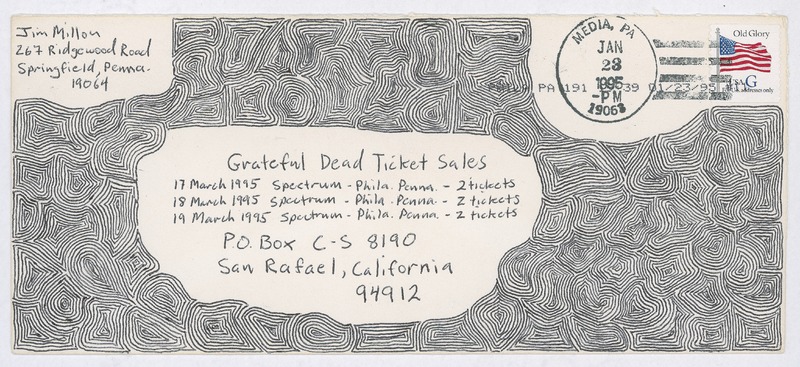 Jim Millon
267 Ridgewood Road
Springfield, Penna.
19064
MEDIA, PA
JAN
23
1995
-PM
19063
Old Glory
USA G
addresses only
PA 191 39 01/23/95
Grateful Dead Ticket Sales
17 March 1995 Spectrum - Phila. Penna. - 2 tickets
18 March 1995 Spectrum - Phila. Penna. - 2 tickets
19 March 1995 Spectrum - Phila. Penna. - 2 tickets
P.O. Box C-S 8190
San Rafael, California
94912